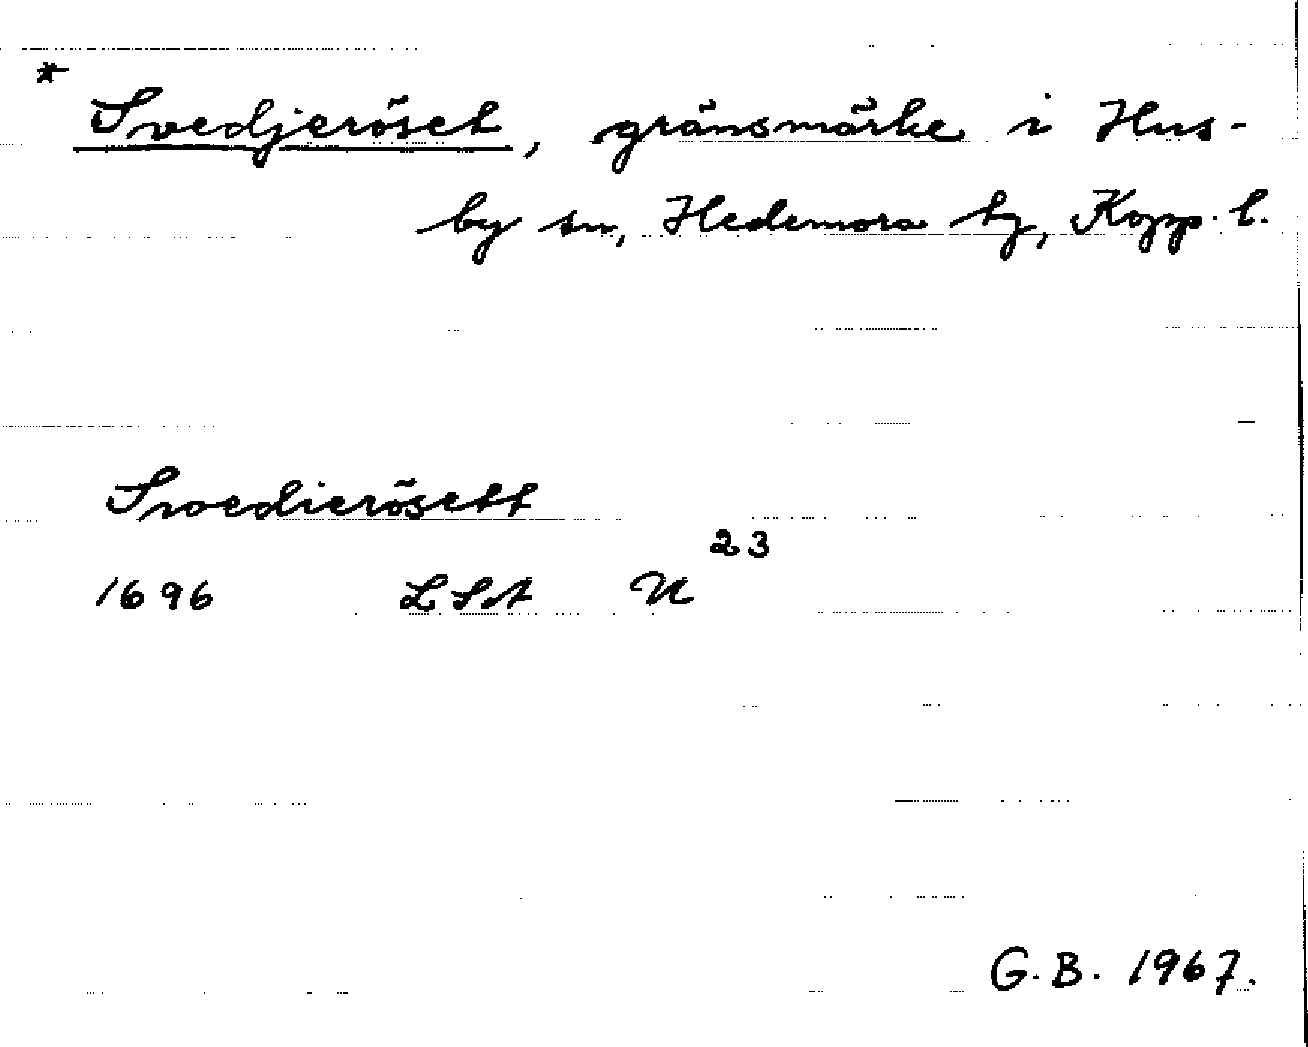 * Svedjeröset, gränsmärke i Hus-
by sn, Hedemora tg, Kopp. l.
Svedierösett
1696 LSA U 23
G.B. 1967.